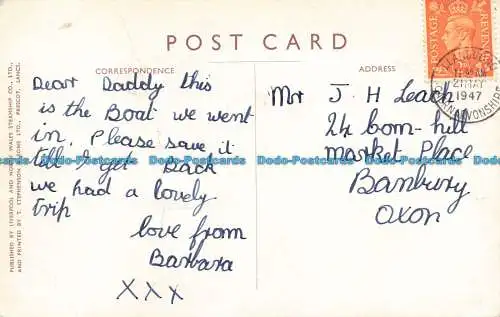 POST CARD
CORRESPONDENCE
ADDRESS
Dear Daddy this
is the Boat we went
in. Please save it
till I get Back
we had a lovely
trip
love from
Barbara
XXX
Mr J. H Leach
24 bom-hill
market Place
Banbury
Oxon
POSTAGE
REVENUE
21 MAY
1947
CAERNARVONSHIRE
PUBLISHED BY LIVERPOOL AND NORTH WALES STEAMSHIP CO., LTD.,
AND PRINTED BY T. STEPHENSON & SONS LTD., PRESCOT, LANCS.
Dodo-Postcards Dodo-Postcards Dodo-Postcards Dodo-Postcards Dodo-Postcards